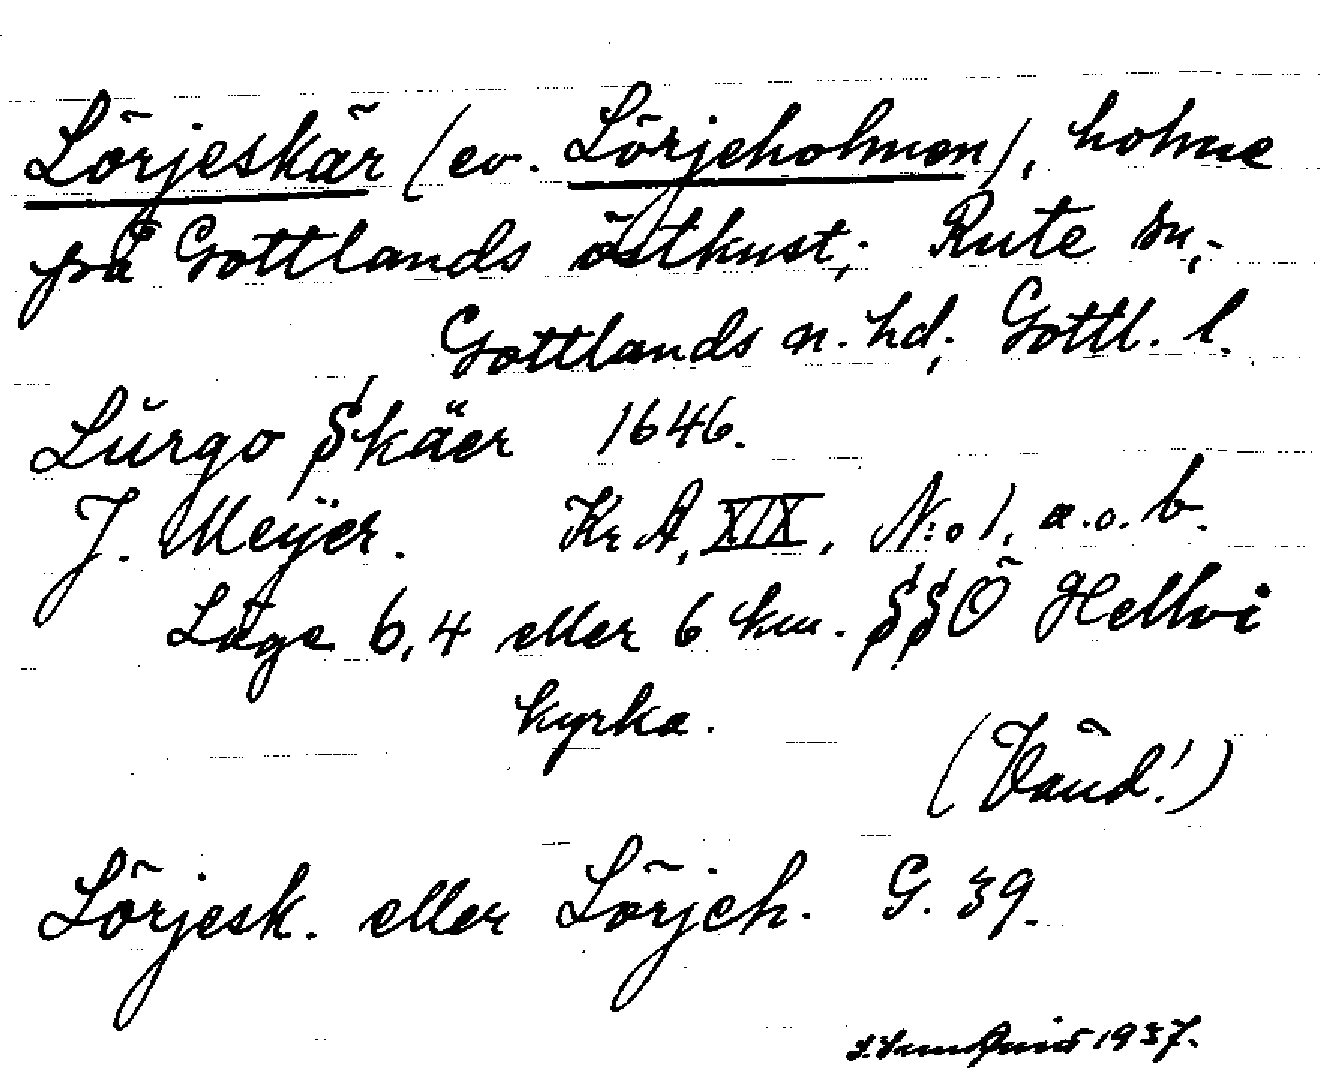 Lörjeskär (ev. Lörjeholmen), holme
på Gottlands östkust; Rute sn,
Gottlands n. hd; Gottl. l.
Lŭrgo Skäer 1646.
J. Meÿer. Kr A, XIX, N:o 1, a.o.b.
Läge 6,4 eller 6 km. SSÖ Hellvi
kyrka.
(Vänd!)
Lörjesk. eller Lörjeh. G. 39.
1937.